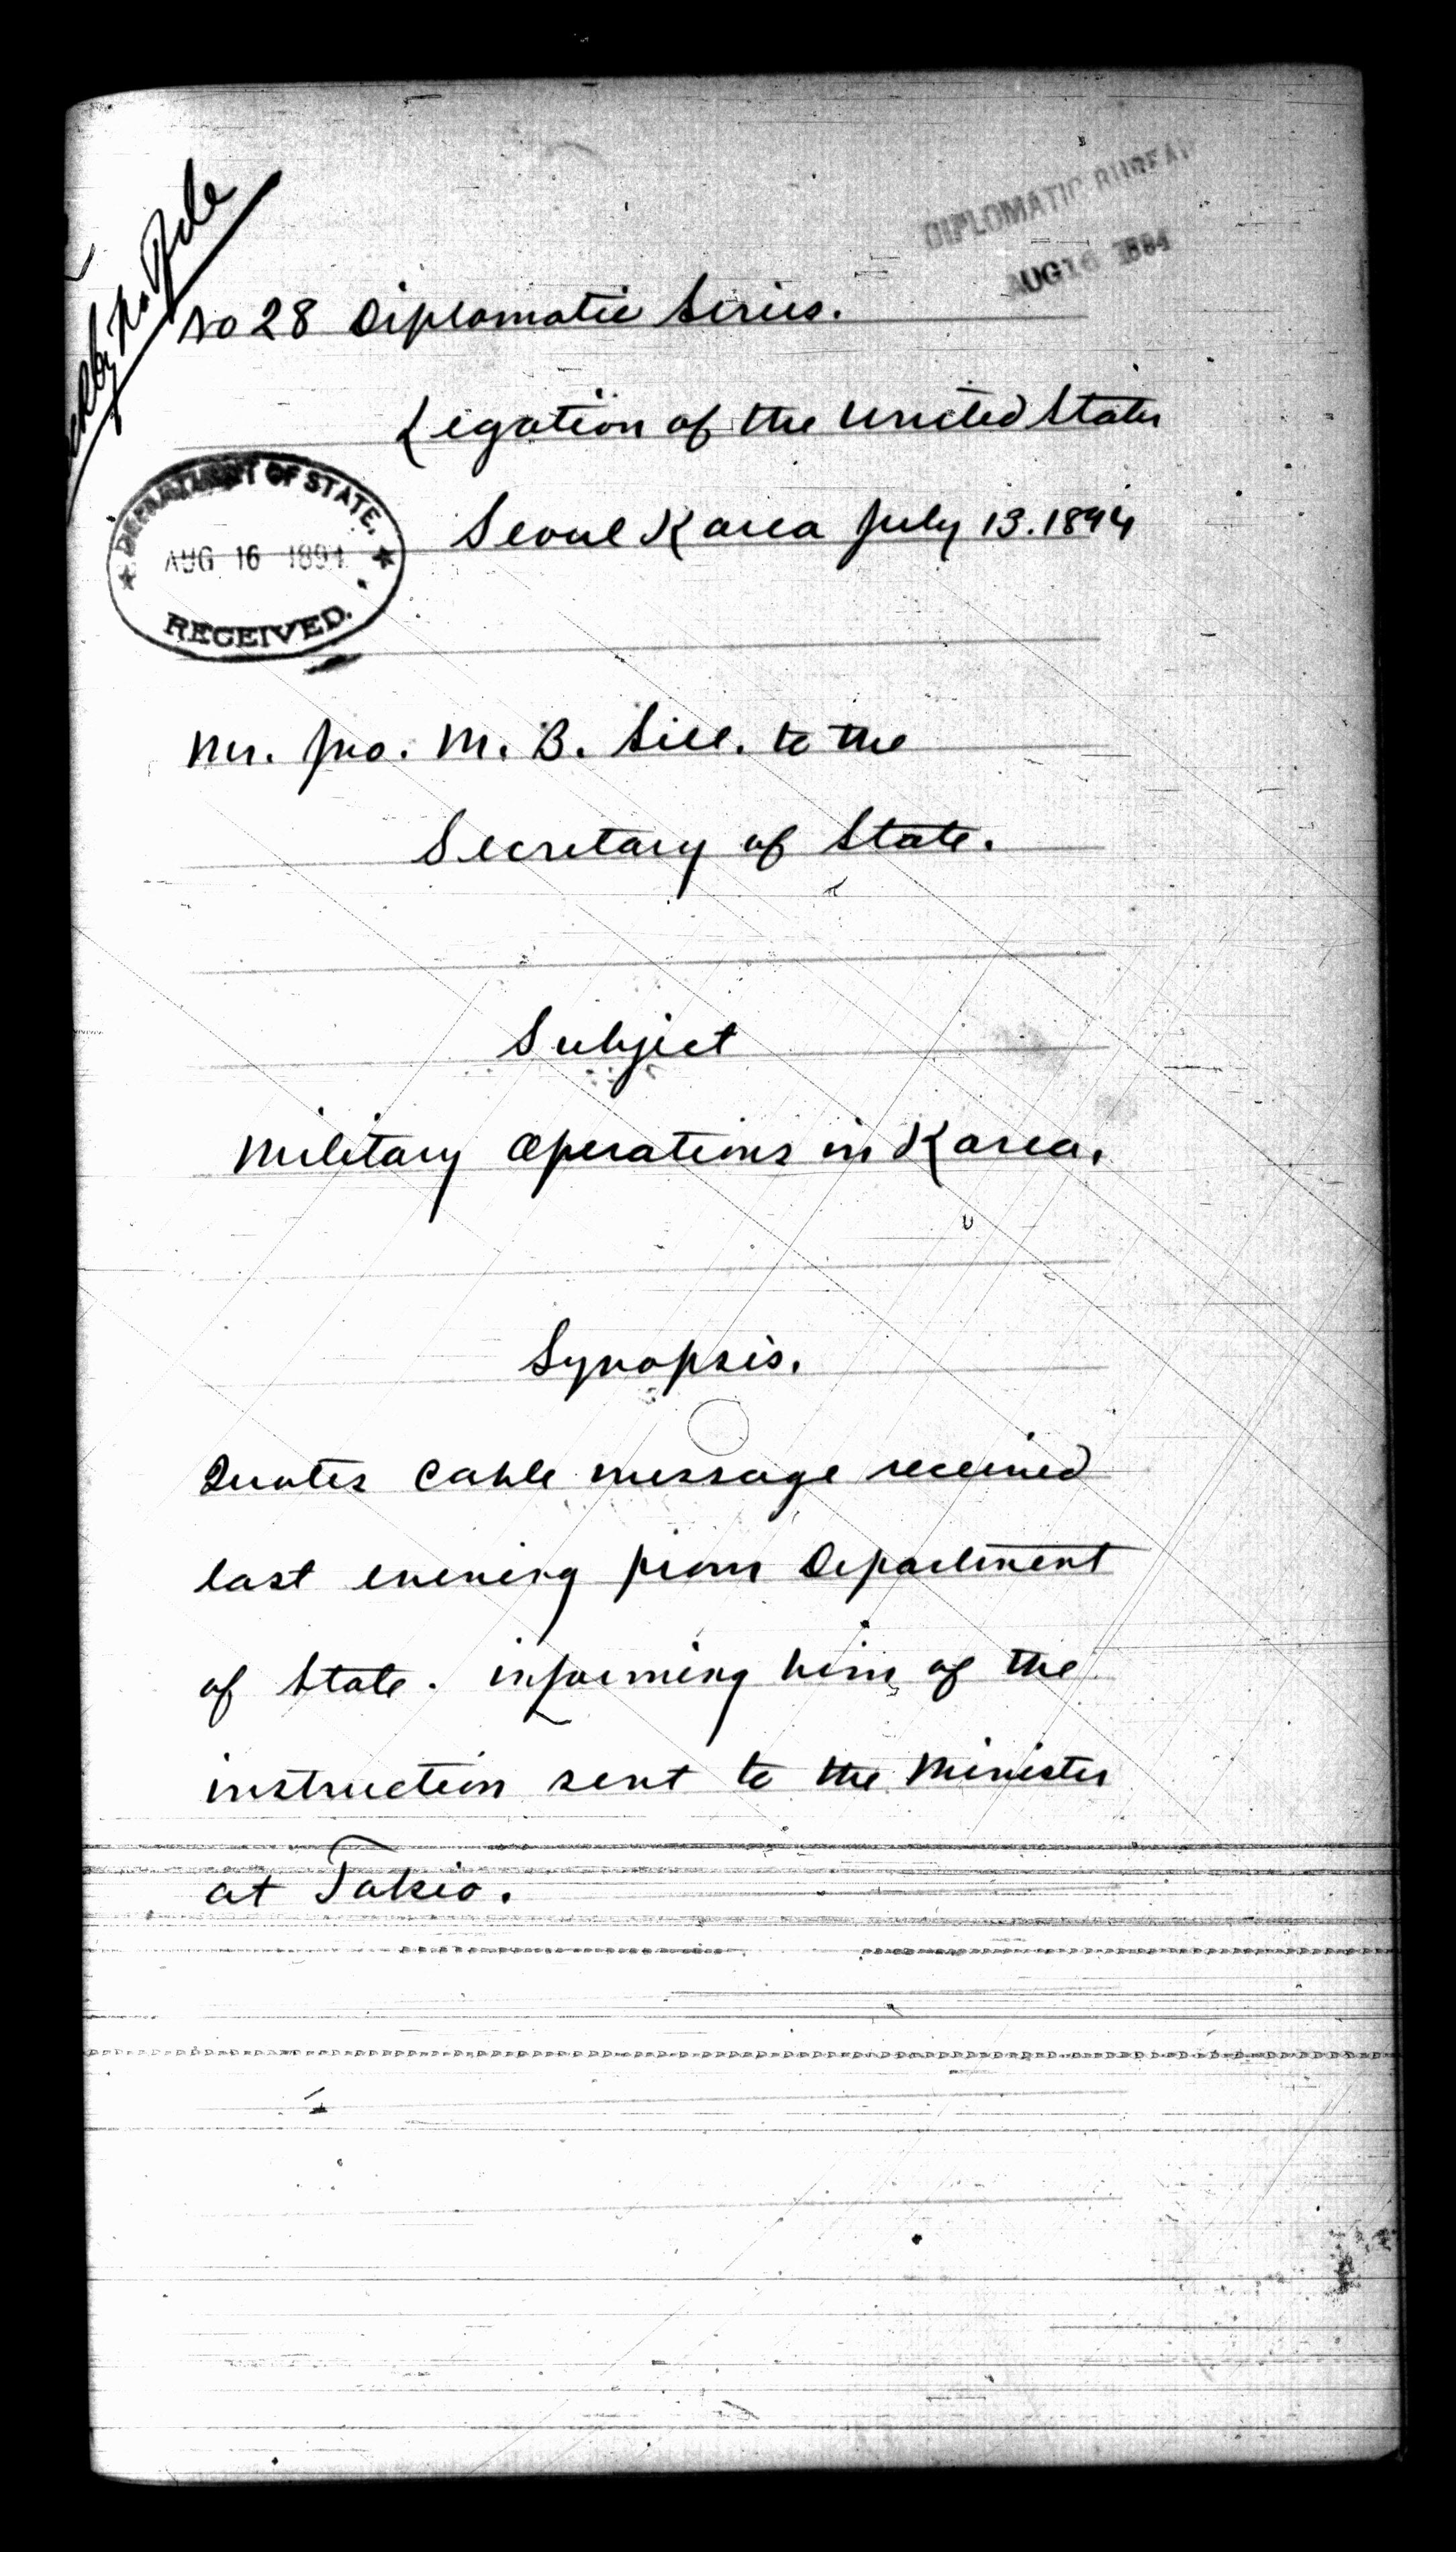 DIPLOMATIC BUREAU
AUG 16 1894
No 28 Diplomatic Series.
Legation of the United States
Seoul Korea July 13. 1894
DEPARTMENT OF STATE.
AUG 16 1894
RECEIVED.
Mr. Jno. M. B. Sill. to the
Secretary of State.
Subject
Military Operations in Korea.
Synopsis.
Quotes cable message received
last evening from Department
of State. informing him of the
instruction sent to the Minister
at Tokio.